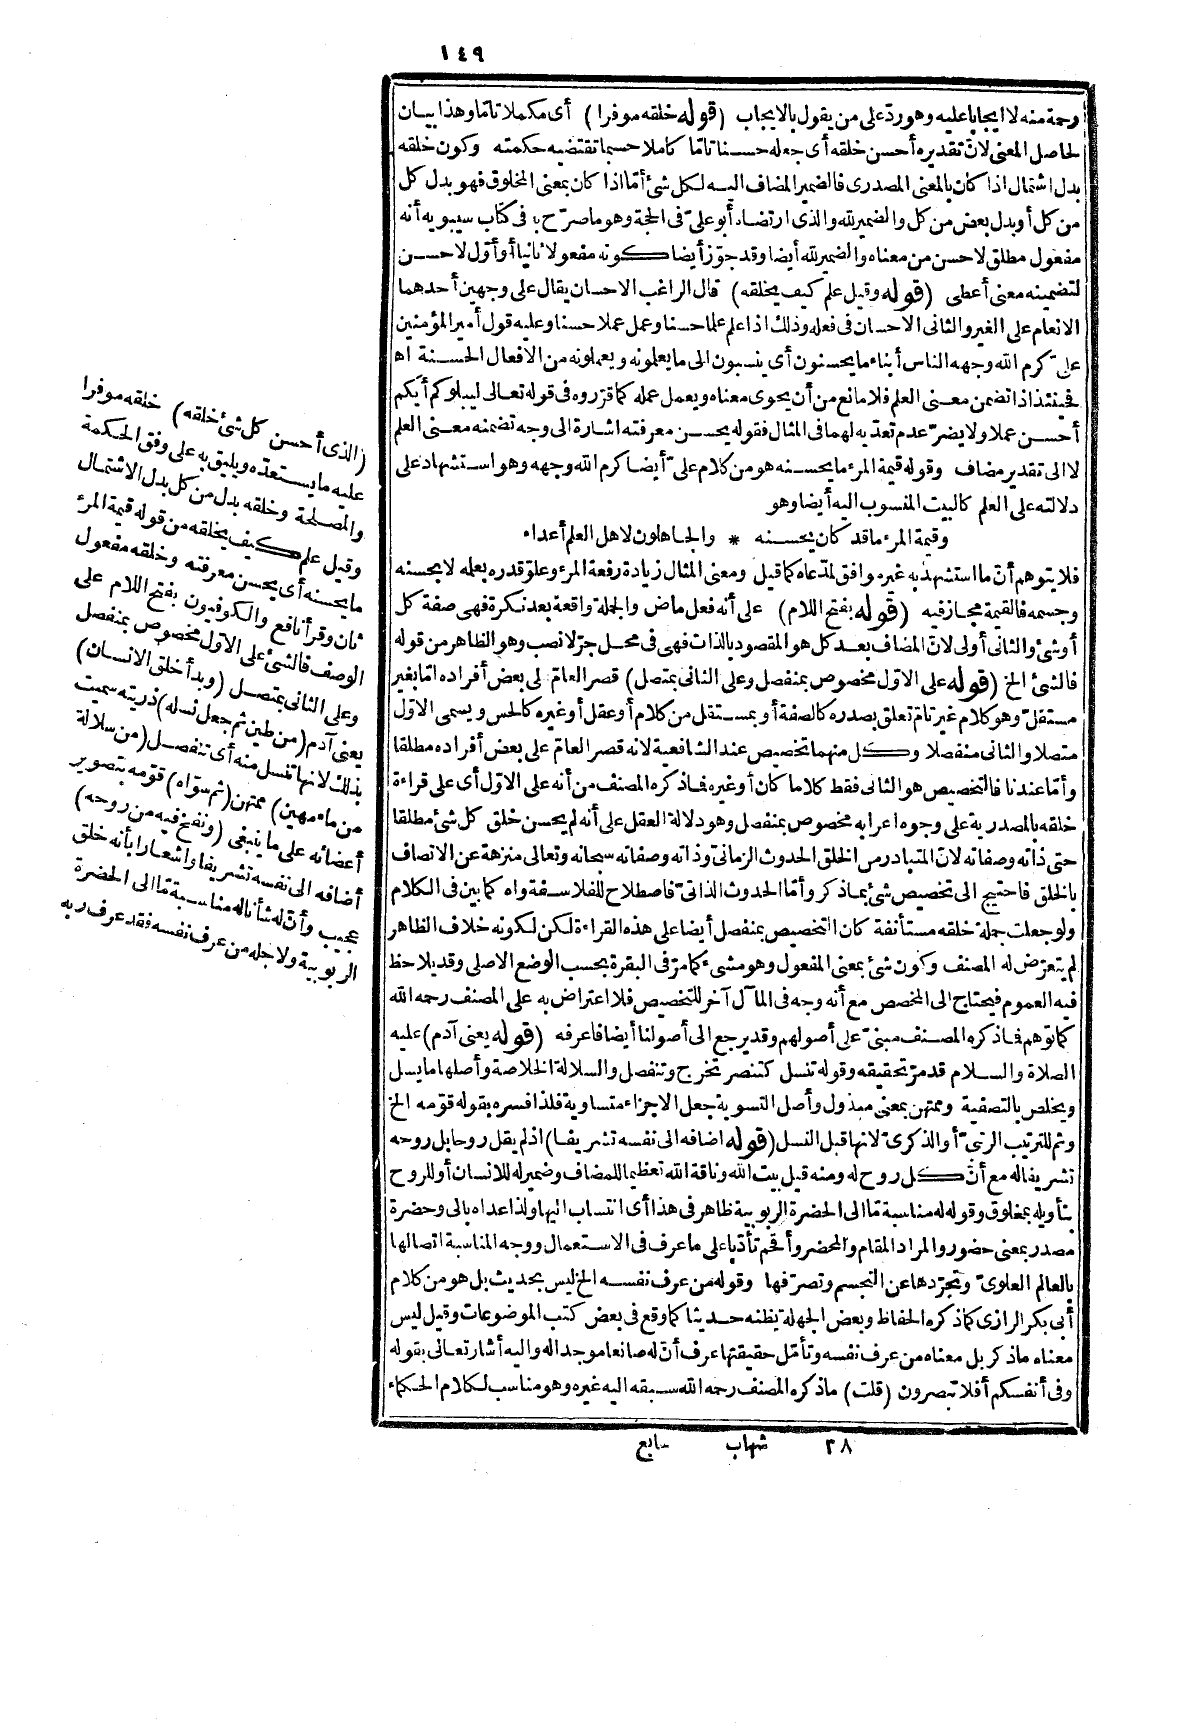 ١٤٩
رحمة منه لا ايجابا عليه وهو ردّ على من يقول بالايجاب (قوله خلقه موفرا) أى مكملا تامّا وهذا بيان
لحاصل المعنى لانّ تقديره أحسن خلقه أى جعله حسنا تامّا كاملا حسبما تقتضيه حكمته وكون خلقه
بدل اشتمال اذا كان بالمعنى المصدرى فالضمير المضاف اليه لكل شئ أمّا اذا كان بمعنى المخلوق فهو بدل كل
من كل أو بدل بعض من كل والضمير لله والذى ارتضاه أبو علىّ فى الحجة وهو ما صرّح به فى كتاب سيبويه أنه
مفعول مطلق لاحسن من معناه والضمير لله أيضا وقد جوّز أيضا كونه مفعولا ثانيا أو أوّل لاحسن
لتضمينه معنى أعطى (قوله وقيل علم كيف يخلقه) قال الراغب الاحسان يقال على وجهين أحدهما
الانعام على الغير والثانى الاحسان فى فعله وذلك اذا علم علما حسنا وعمل عملا حسنا وعليه قول أمير المؤمنين
علىّ كرم الله وجهه الناس أبناء ما يحسنون أى ينسبون الى ما يعلمونه ويعملونه من الافعال الحسنة اه
فحينئذ اذا تضمن معنى العلم فلا مانع من أن يحوى معناه ويعمل عمله كما قرّروه فى قوله تعالى ليبلوكم أيكم
أحسن عملا ولا يضرّ عدم تعدّيه لهما فى المثال فقوله يحسن معرفته اشارة الى وجه تضمنه معنى العلم
لا الى تقدير مضاف وقوله قيمة المرء ما يحسنه هو من كلام علىّ أيضا كرم الله وجهه وهو استشهاد على
دلالته على العلم كالبيت المنسوب اليه أيضا وهو
وقيمة المرء ما قد كان يحسنه * والجاهلون لاهل العلم أعداء
فلا يتوهم أنّ ما استشهد به غير موافق لمدّعاه كما قيل ومعنى المثال زيادة رفعة المرء وعلوّ قدره بعلمه لا بحسنه
وجسمه فالقيمة مجاز فيه (قوله بفتح اللام) على أنه فعل ماض والجملة واقعة بعد نكرة فهى صفة كل
أو شئ والثانى أولى لانّ المضاف بعد كل هو المقصود بالذات فهى فى محل جرّ لا نصب وهو الظاهر من قوله
فالشئ الخ (قوله على الاوّل مخصوص بمنفصل وعلى الثانى بمتصل) قصر العامّ على بعض أفراده امّا بغير
مستقلّ وهو كلام غير تامّ تعلق بصدره كالصفة أو بمستقل من كلام أو عقل أو غيره كالحس ويسمى الاوّل
متصلا والثانى منفصلا وكل منهما تخصيص عند الشافعية لانه قصر العامّ على بعض أفراده مطلقا
وأمّا عندنا فالتخصيص هو الثانى فقط كلاما كان أو غيره فما ذكره المصنف من أنه على الاوّل أى على قراءة
خلقه بالمصدرية على وجوه اعرابه مخصوص بمنفصل وهو دلالة العقل على أنه لم يحسن خلق كل شئ مطلقا
حتى ذاته وصفاته لانّ المتبادر من الخلق الحدوث الزمانىّ وذاته وصفاته سبحانه وتعالى منزهة عن الاتصاف
بالخلق فاحتيج الى تخصيص شئ بما ذكر وأمّا الحدوث الذاتىّ فاصطلاح للفلاسفة واه كما بين فى الكلام
ولو جعلت جملة خلقه مستأنفة كان التخصيص بمنفصل أيضا على هذه القراءة لكن لكونه خلاف الظاهر
لم يتعرّض له المصنف وكون شئ بمعنى المفعول وهو مشىء كما مرّ فى البقرة بحسب الوضع الاصلى وقد يلاحظ
فيه العموم فيحتاج الى المخصص مع أنه وجه فى المآل آخر للتخصيص فلا اعتراض به على المصنف رحمه الله
كما توهم فما ذكره المصنف مبنىّ على أصولهم وقد يرجع الى أصولنا أيضا فاعرفه (قوله يعنى آدم) عليه
الصلاة والسلام قد مرّ تحقيقه وقوله تنسل كتنصر تخرج وتنفصل والسلالة الخلاصة وأصلها ما يسل
ويخلص بالتصفية وممتهن بمعنى مبذول وأصل التسوية جعل الاجزاء متساوية فلذا فسره بقوله قوّمه الخ
وثم للترتيب الرتبىّ أو الذكرىّ لانها قبل النسل (قوله اضافه الى نفسه تشريفا) اذ لم يقل روحا بل روحه
تشريفا له مع أنّ كل روح له ومنه قيل بيت الله وناقة الله تعظيما للمضاف وضمير له للانسان أو للروح
بتأويله بمخلوق وقوله له مناسبة ما الى الحضرة الربوبية ظاهر فى هذا أى انتساب اليها ولذا عداه بالى وحضرة
مصدر بمعنى حضور والمراد المقام والمحضر وأقحم تأدّبا على ما عرف فى الاستعمال ووجه المناسبة اتصالها
بالعالم العلوىّ وتجرّدها عن التجسم وتصرّفها وقوله من عرف نفسه الخ ليس بحديث بل هو من كلام
أبى بكر الرازى كما ذكره الحفاظ وبعض الجهلة يظنه حديثا كما وقع فى بعض كتب الموضوعات وقيل ليس
معناه ما ذكر بل معناه من عرف نفسه وتأمّل حقيقتها عرف أنّ له صانعا موجدا له واليه أشار تعالى بقوله
وفى أنفسكم أفلا تبصرون (قلت) ما ذكره المصنف رحمه الله سبقه اليه غيره وهو مناسب لكلام الحكماء
٣٨ شهاب سابع
(الذى أحسن كل شئ خلقه) خلقه موفرا
عليه ما يستعدّه ويليق به على وفق الحكمة
والمصلحة وخلقه بدل من كل بدل الاشتمال
وقيل علم كيف يخلقه من قوله قيمة المرء
ما يحسنه أى يحسن معرفته وخلقه مفعول
ثان وقرأ نافع والكوفيون بفتح اللام على
الوصف فالشئ على الاوّل مخصوص بمنفصل
وعلى الثانى بمتصل (وبدأ خلق الانسان)
يعنى آدم (من طين ثم جعل نسله) ذريته سميت
بذلك لانها تنسل منه أى تنفصل (من سلالة
من ماء مهين) ممتهن (ثم سوّاه) قوّمه بتصوير
أعضائه على ما ينبغى (ونفخ فيه من روحه)
أضافه الى نفسه تشريفا واشعارا بأنه خلق
عجيب وأنّ له شأنا له مناسبة ما الى الحضرة
الربوبية ولاجله من عرف نفسه فقد عرف ربه